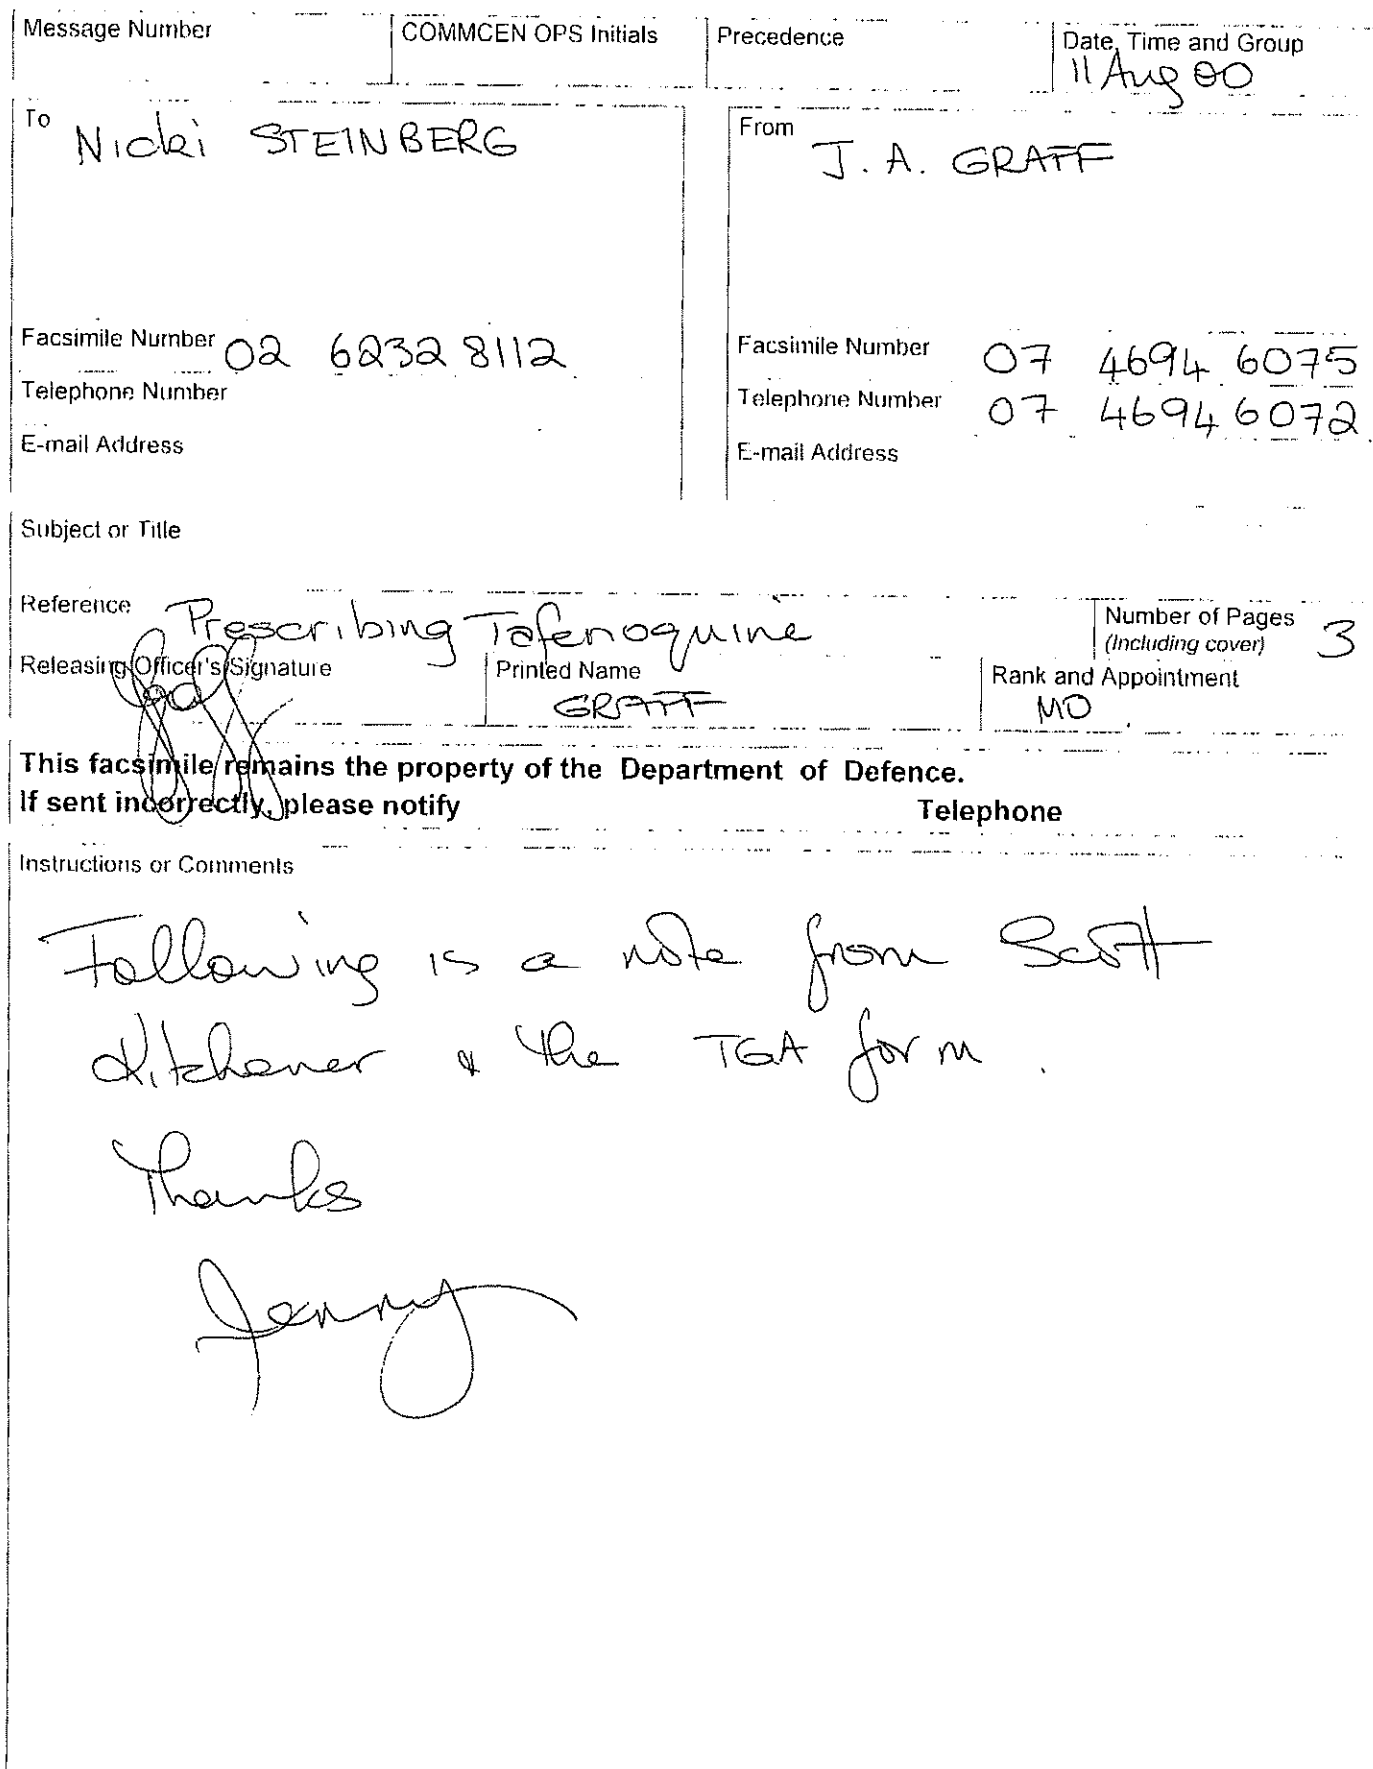 Message Number
COMMCEN OPS Initials
Precedence
Date, Time and Group
11 Aug 00
To
Nicki STEINBERG
From
J. A. GRAFF
Facsimile Number 02 6232 8112
Telephone Number
E-mail Address
Facsimile Number 07 4694 6075
Telephone Number 07 4694 6072
E-mail Address
Subject or Title
Reference Prescribing Tafenoquine
Number of Pages 3
(Including cover)
Releasing Officer's Signature
Printed Name
GRAFF
Rank and Appointment
MO
This facsimile remains the property of the Department of Defence.
If sent incorrectly, please notify Telephone
Instructions or Comments
Following is a note from Scott
Kitchener & the TGA form.
Thanks
Jenny